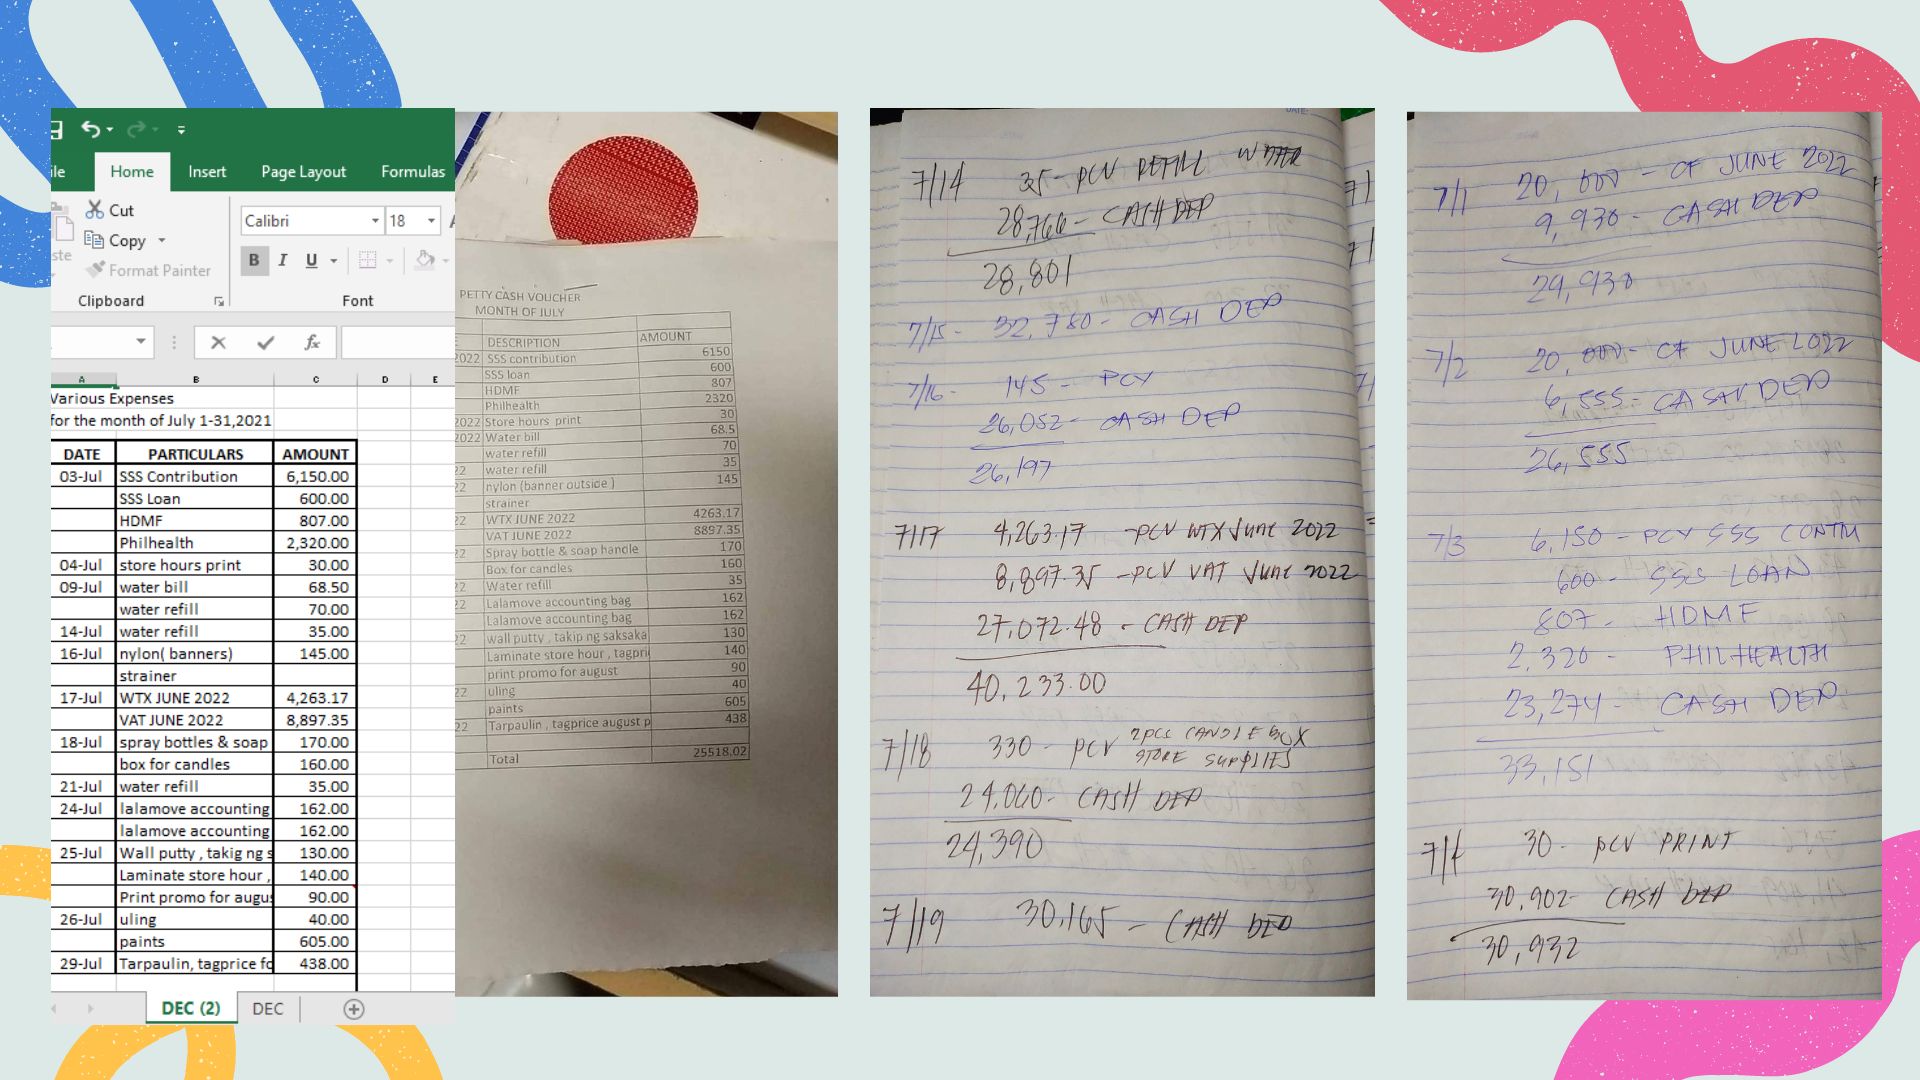 Home Insert Page Layout Formulas
Cut
Calibri 18
Copy
Format Painter
B I U
Clipboard Font
fx
A B C D E
Various Expenses
for the month of July 1-31,2021
DATE PARTICULARS AMOUNT
03-Jul SSS Contribution 6,150.00
SSS Loan 600.00
HDMF 807.00
Philhealth 2,320.00
04-Jul store hours print 30.00
09-Jul water bill 68.50
water refill 70.00
14-Jul water refill 35.00
16-Jul nylon( banners) 145.00
strainer
17-Jul WTX JUNE 2022 4,263.17
VAT JUNE 2022 8,897.35
18-Jul spray bottles & soap 170.00
box for candles 160.00
21-Jul water refill 35.00
24-Jul lalamove accounting 162.00
lalamove accounting 162.00
25-Jul Wall putty , takig ng s 130.00
Laminate store hour , 140.00
Print promo for augu 90.00
26-Jul uling 40.00
paints 605.00
29-Jul Tarpaulin, tagprice fo 438.00
DEC (2) DEC
PETTY CASH VOUCHER
MONTH OF JULY
DESCRIPTION AMOUNT
2022 SSS contribution 6150
SSS loan 600
HDMF 807
Philhealth 2320
2022 Store hours print 30
2022 Water bill 68.5
water refill 70
22 water refill 35
22 nylon (banner outside ) 145
strainer
22 WTX JUNE 2022 4263.17
VAT JUNE 2022 8897.35
22 Spray bottle & soap handle 170
Box for candles 160
22 Water refill 35
22 Lalamove accounting bag 162
Lalamove accounting bag 162
22 wall putty , takip ng saksaka 130
Laminate store hour , tagpri 140
print promo for august 90
22 uling 40
paints 605
22 Tarpaulin , tagprice august p 438
Total 25518.02
7/14 35 - PCV REFILL WATER
28,766 - CASH DEP
28,801
7/15 - 32,780 - CASH DEP
7/16 - 145 - PCV
26,052 - CASH DEP
26,197
7/17 4,263.17 - PCV WTX June 2022
8,897.35 - PCV VAT June 2022
27,072.48 - CASH DEP
40,233.00
7/18 330 - PCV 2pcs CANDLE BOX
STORE SUPPLIES
24,060 - CASH DEP
24,390
7/19 30,165 - CASH DEP
DATE:
7/1 20,000 - CF JUNE 2022
9,930 - CASH DEP
29,930
7/2 20,000 - CF JUNE 2022
6,555 - CASH DEP
26,555
7/3 6,150 - PCV SSS CONTRI
600 - SSS LOAN
807 - HDMF
2,320 - PHILHEALTH
23,274 - CASH DEP
33,151
7/4 30 - PCV PRINT
30,902 - CASH DEP
30,932